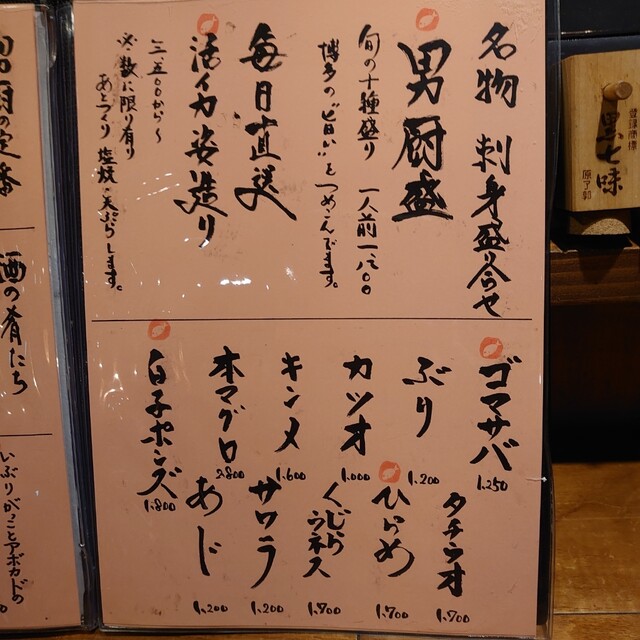 名物 刺身盛り合せ
男厨盛
旬の十種盛り 一人前一八〇〇
博多の“旨い”をつめこんでます。
毎日直送
活イカ姿造り
三、五〇〇から〜
※数に限り有り
あとづくり 塩焼・天ぷらします。
ゴマサバ
1.250
ぶり
1.200
カツオ
1.000
キンメ
1.600
本マグロ
2.800
白子ポンズ
1.800
タチウオ
1.700
ひらめ
1.700
くじらウネス
1.700
サワラ
1.200
あじ
1.200
男厨の定番
酒の肴たち
いぶりがっことアボカドの
黒七味
原了郭